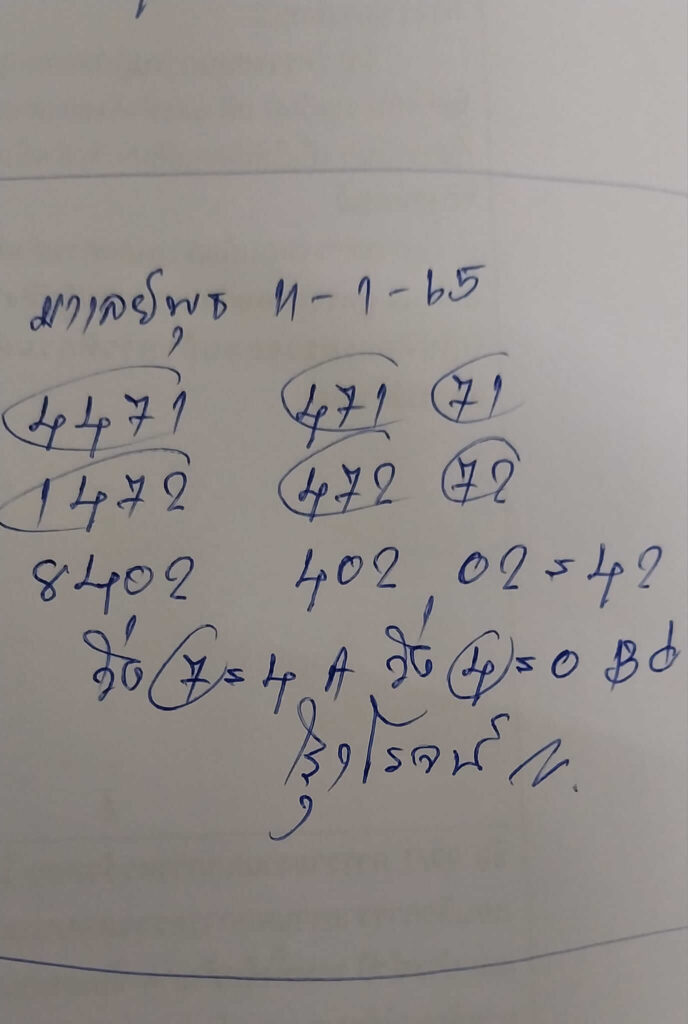 มาเลย์พุธ 11-1-65
4471 471 71
1472 472 72
8402 402, 02=42
วิ่ง 7=4 A วิ่ง 4=0 B
โรจน์ N.